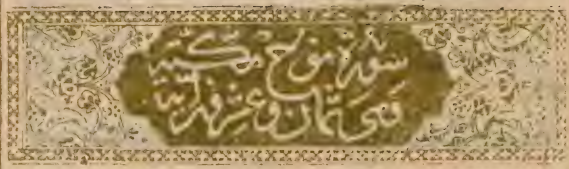 سورة نوح مكية
وهى ثمان وعشرون آية